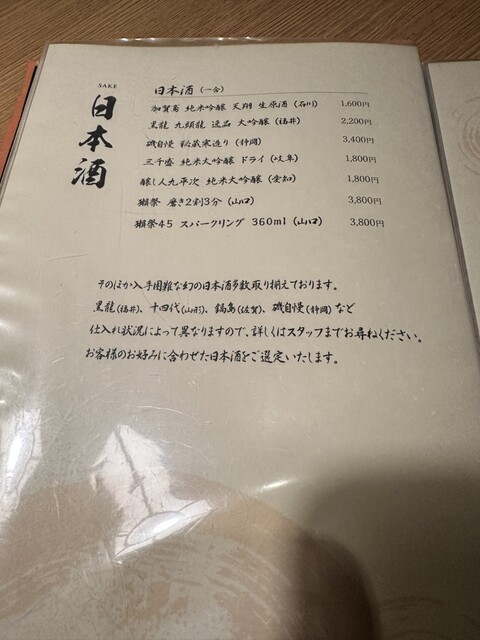 SAKE
日本酒
日本酒 (一合)
加賀鳶 純米吟醸 天翔 生原酒 (石川) 1,600円
黒龍 九頭龍 逸品 大吟醸 (福井) 2,200円
磯自慢 秘蔵寒造り (静岡) 3,400円
三千盛 純米大吟醸 ドライ (岐阜) 1,800円
醸し人九平次 純米大吟醸 (愛知) 1,800円
獺祭 磨き2割3分 (山口) 3,800円
獺祭45 スパークリング 360ml (山口) 3,800円
そのほか入手困難な幻の日本酒多数取り揃えております。
黒龍(福井)、十四代(山形)、鍋島(佐賀)、磯自慢(静岡) など
仕入れ状況によって異なりますので、詳しくはスタッフまでお尋ねください。
お客様のお好みに合わせた日本酒をご選定いたします。